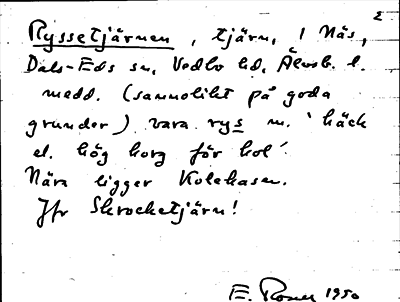 2
Ryssetjärnen, tjärn, i Näs,
Dals-Eds sn, Vedbo hd, Älvsb. l.
medd. (sannolikt på goda
grunder) vara rys m. 'häck
el. hög korg för kol'.
Nära ligger Kolehasen.
Jfr Skrocketjärn!
E. Rosell 1950